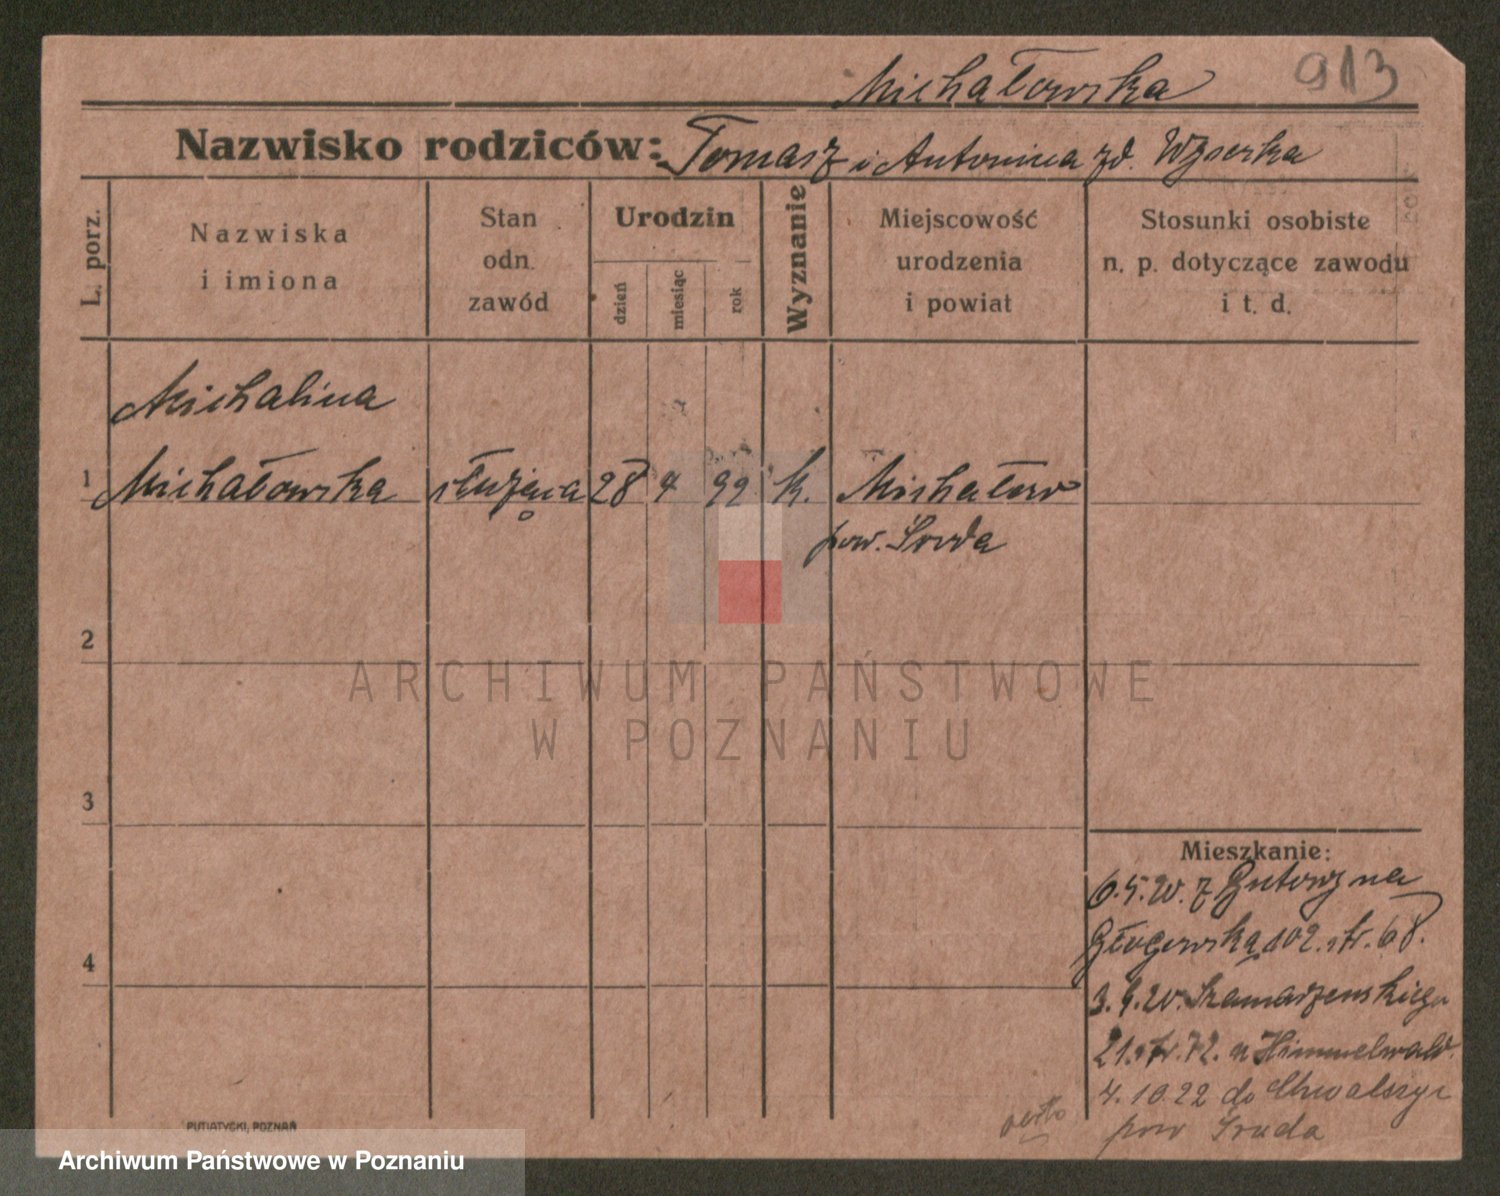 Michałowska 913
Nazwisko rodziców: Tomasz i Antonina zd.
L. porz.
Nazwiska
i imiona
Stan
odn.
zawód
Urodzin
dzień
miesiąc
rok
Wyznanie
Miejscowość
urodzenia
i powiat
Stosunki osobiste
n. p. dotyczące zawodu
i t. d.
Michalina
1 Michałowska służąca 28 9 99 k. Michałow
pow. Środa
2
ARCHIWUM PAŃSTWOWE
W POZNANIU
3
4
Mieszkanie:
6.5.20. z na
Głogowską 102. str. 68.
3.9.20. Szamarzewskiego
21. str. 72. u Himmelwald.
4.10.22 do
pow Środa
verto
PUTIATYCKI, POZNAŃ
Archiwum Państwowe w Poznaniu